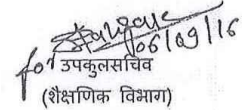 06/09/16
for उपकुलसचिव
(शैक्षणिक विभाग)